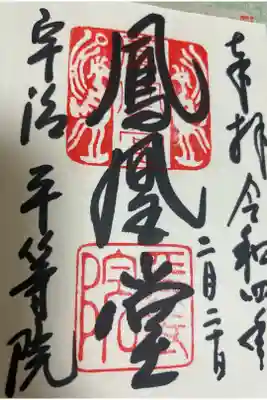 奉拝 令和四年
二月二十日
鳳凰堂
宇治 平等院